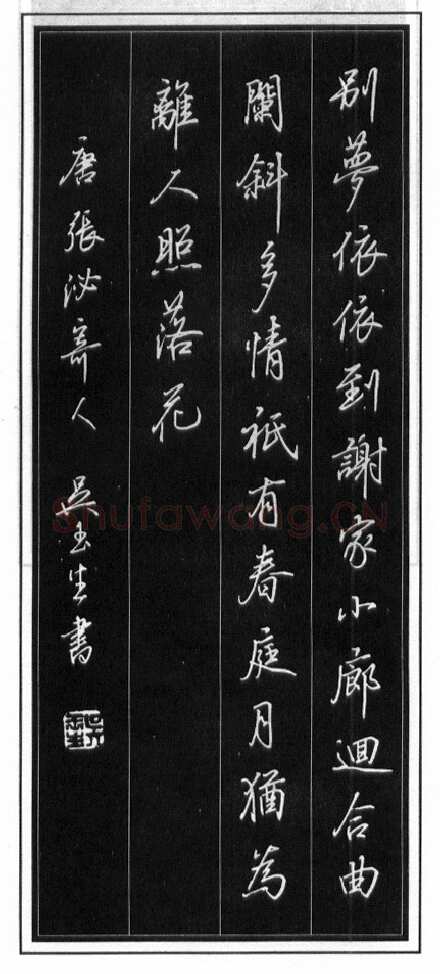 別夢依依到謝家小廊迴合曲
闌斜多情祇有春庭月猶為
離人照落花
唐張泌寄人 吳玉生書
Shufawang.CN